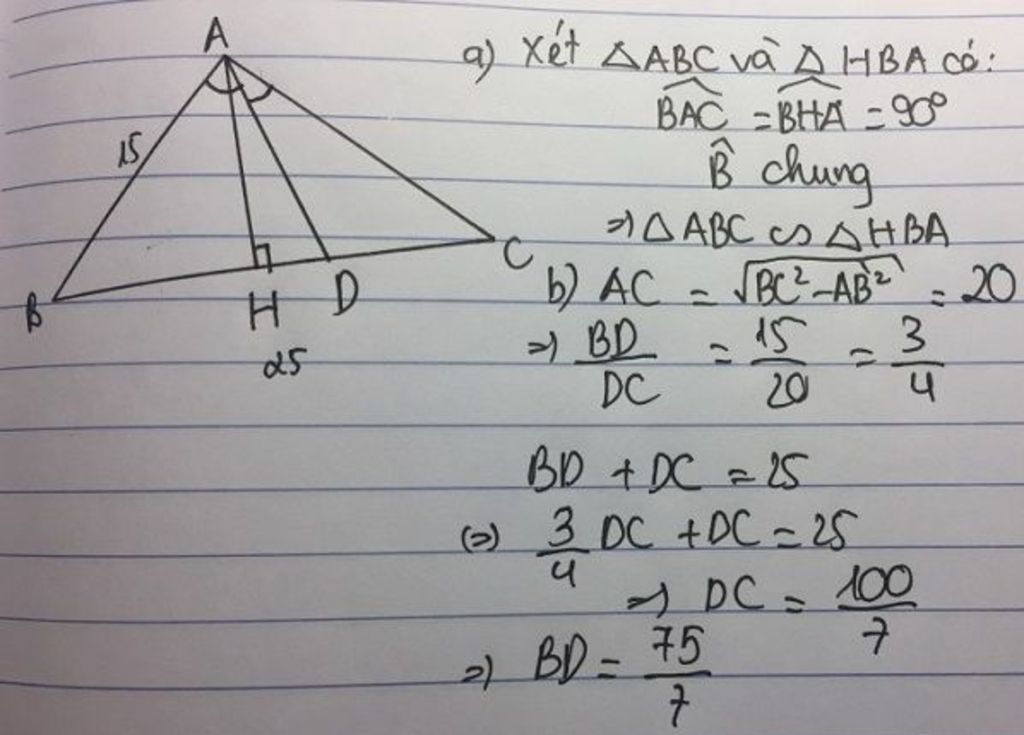 A
15
B
H
D
C
25
a) Xét △ABC và △HBA có:
BAC = BHA = 90°
B̂ chung
⇒ △ABC ∽ △HBA
b) AC = √BC² - AB² = 20
⇒ BD/DC = 15/20 = 3/4
BD + DC = 25
(⇒) 3/4 DC + DC = 25
⇒ DC = 100/7
⇒ BD = 75/7